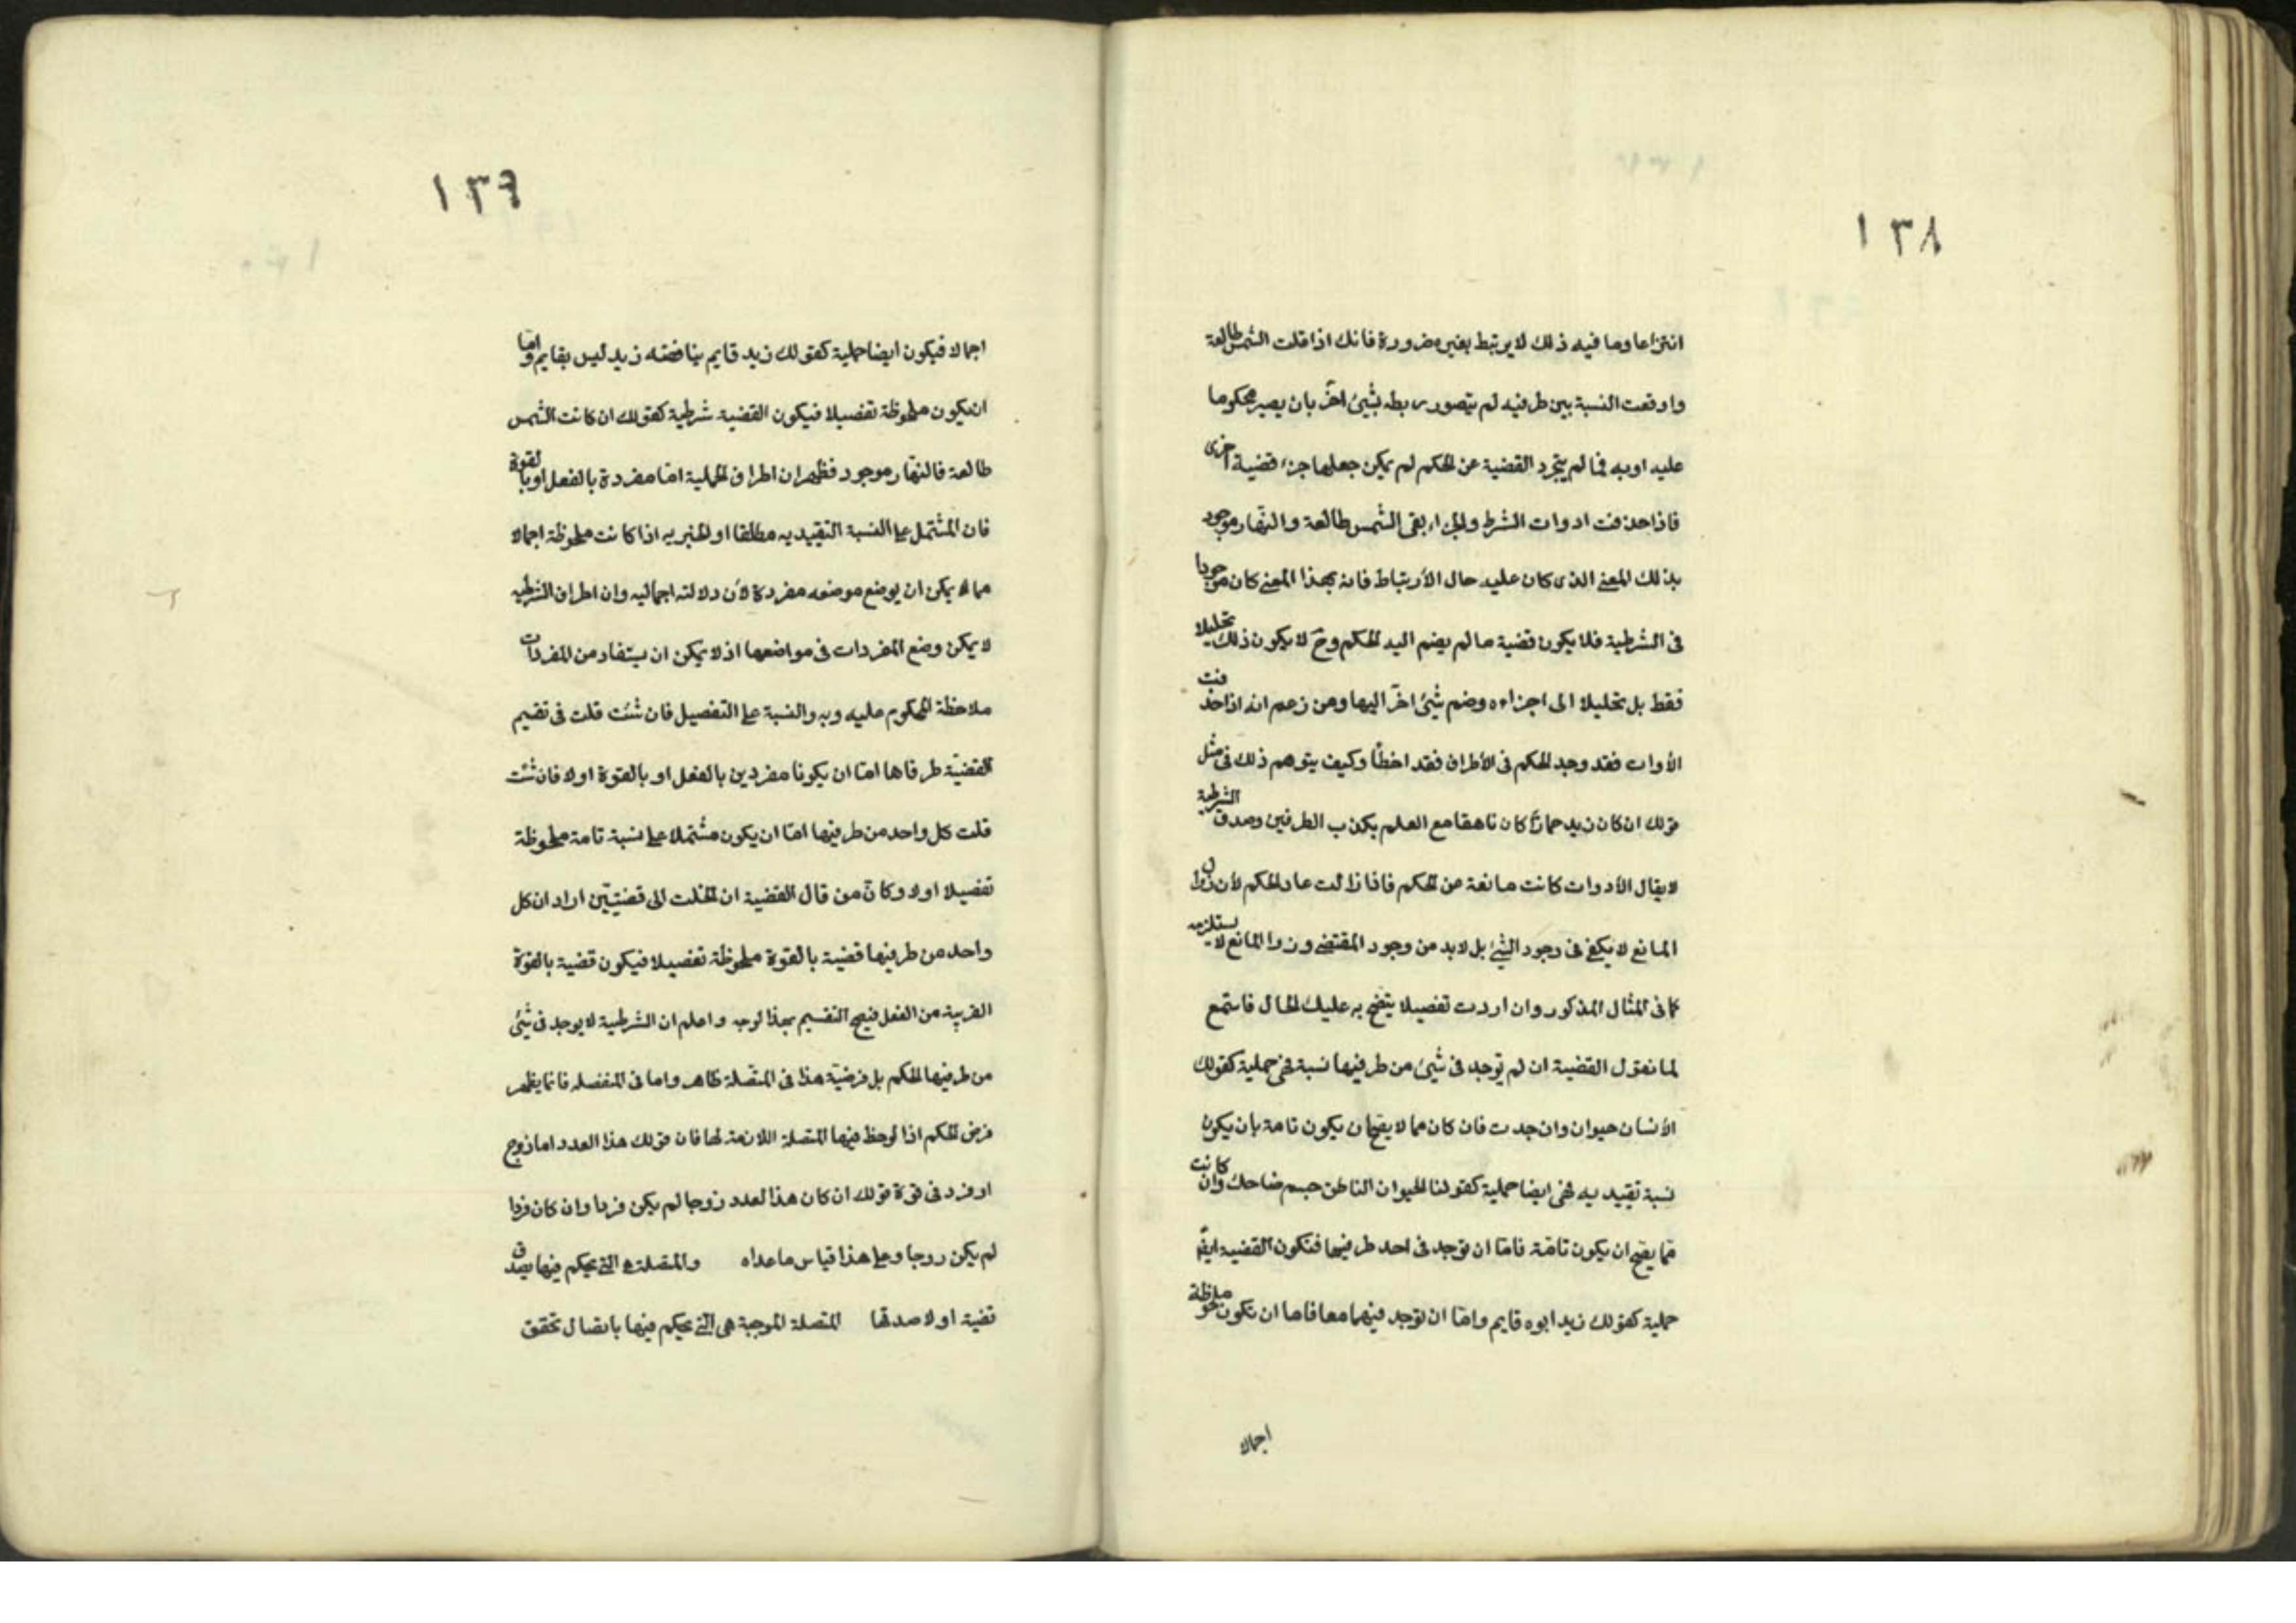 ١٣٨
انتزاعا وما فيه ذلك لا يرتبط بغيره ضرورة فانك اذا قلت الشمس طالعة
واوقعت النسبة بين طرفيه لم يتصور ربطه بشيئ اخر بان يصير محكوما
عليه او به فما لم يتجرد القضية عن الحكم لم يمكن جعلها جزء قضية اخرى
فاذا حذفت ادوات الشرط والجزاء بقى الشمس طالعة والنهار موجود
بذلك المعنى الذى كان عليه حال الأرتباط فانه بهذا المعنى كان موجودا
فى الشرطية فلا يكون قضية ما لم يضم اليه الحكم وح لا يكون ذلك تحليلا
فقط بل تحليلا الى اجزاءه وضم شيئ اخر اليها ومن زعم انه اذا حذفت
الأوات فقد وجد الحكم فى الأطراف فقد اخطأ وكيف يتوهم ذلك فى مثل
قولك ان كان زيد حمارًا كان ناهقا مع العلم بكذب الطرفين وصدق الشرطية
لا يقال الأدوات كانت مانعة عن الحكم فاذا زالت عاد الحكم لأن زوال
المانع لا يكفى فى وجود الشيئ بل لا بد من وجود المقتضى وزوا المانع لا يستلزمه
كما فى المثال المذكور وان اردت تفصيلا يتضح به عليك الحال فاستمع
لما نقول القضية ان لم توجد فى شيئ من طرفيها نسبة فهى حملية كقولك
الأنسان حيوان وان جدت فان كان مما لا يصح ان يكون تامة بان يكون
نسبة تقييديه فهى ايضا حملية كقولنا الحيوان الناطق جسم ضاحك وان كانت
مما يصح ان يكون تامّة فامّا ان توجد فى احد طرفيها فتكون القضية ايضً
حملية كقولك زيد ابوه قايم وامّا ان توجد فيهما معا فاما ان تكون ملحوظة
اجمالا
١٣٩
اجمالا فيكون ايضا حملية كقولك زيد قايم يناقضه زيد ليس بقايم وامّا
ان يكون ملحوظة تفصيلا فيكون القضية شرطية كقولك ان كانت الشمس
طالعة فالنهار موجود فظهر ان اطراف الحملية امّا مفردة بالفعل او بالقوة
فان المشتمل على النسبة التقييديه مطلقا او الخبريه اذا كانت ملحوظة اجمالا
مما لا يمكن ان يوضع موضعه مفردة لأن دلالته اجماليه وان اطراف الشرطيه
لا يمكن وضع المفردات فى مواضعها اذ لا يمكن ان يستفاد من المفردات
ملاحظة المحكوم عليه وبه والنسبة على التفصيل فان شئت قلت فى تقسيم
القضيّة طرفاها امّا ان يكونا مفردين بالفعل او بالقوة اولا فان شئت
قلت كل واحد من طرفيها امّا ان يكون مشتملا على نسبة تامة ملحوظة
تفصيلا اولا وكانّ من قال القضية ان انحلت الى قضيتين اراد ان كل
واحد من طرفيها قضية بالقوة ملحوظة تفصيلا فيكون قضية بالقوة
القريبة من الفعل فيصح التقسيم بهذا لوجه واعلم ان الشرطية لا يوجد فى شيئ
من طرفيها الحكم بل فرضيّة هذا فى المتصلة ظاهر واما فى المنفصله فانما يظهر
فرض الحكم اذا لوحظ فيها المتصلة اللازمة لها فان قولك هذا العدد اما زوج
او فرد فى قوة قولك ان كان هذا لعدد زوجا لم يكن فردا وان كان فردا
لم يكن روجا وعلى هذا قياس ماعداه والمتصلة هى التى يحكم فيها بصدق
قضية اولا صدقها المتصلة الموجبة هى التى يحكم فيها باتصال تحقق